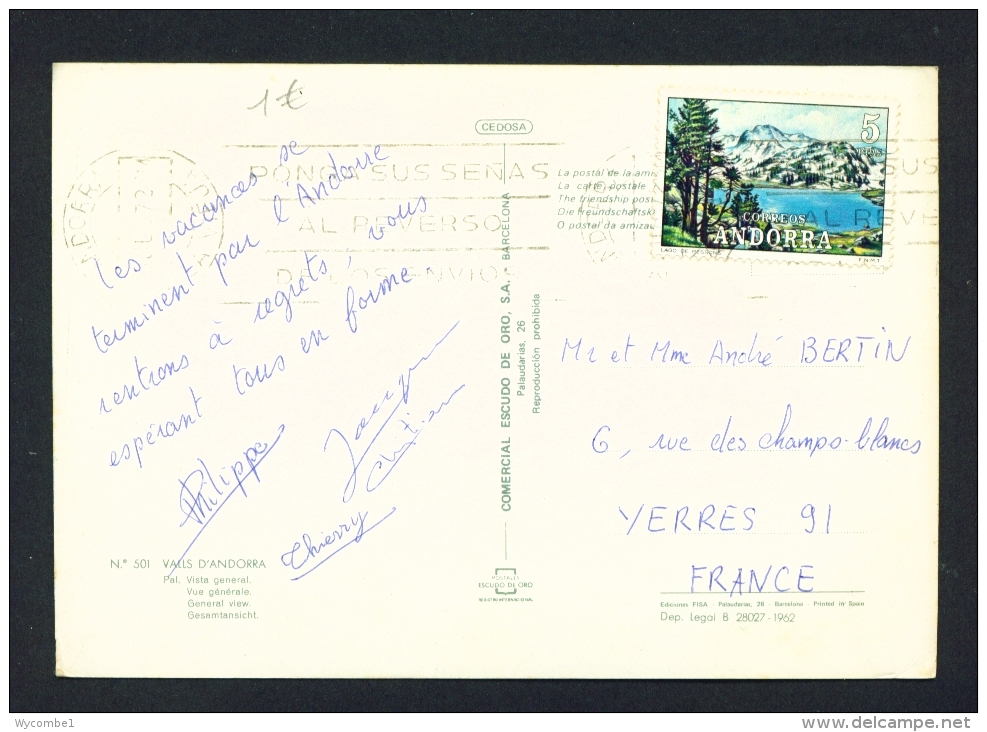 1€
CEDOSA
PONGA SUS SEÑAS
AL REVERSO
DE LOS ENVIOS
les vacances se
terminent par l'Andorre
rentrons à regrets, vous
espérant tous en forme
Philippe
Jacques
Christian
Thierry
N.° 501 VALLS D'ANDORRA
Pal. Vista general.
Vue générale.
General view.
Gesamtansicht.
COMERCIAL ESCUDO DE ORO, S.A. - BARCELONA
Palaudarias, 26
Reproducción prohibida
POSTALES
ESCUDO DE ORO
REGISTRO INTERNACIONAL
La postal de la amis
La carte postale
The friendship post
Die Freundschaftsk
O postal da amizad
5
CORREOS
ANDORRA
F.N.M.T.
SUS
AL REVE
Mr et Mme André BERTIN
6, rue des champs-blancs
YERRES 91
FRANCE
Ediciones FISA - Palaudarias, 26 - Barcelona - Printed in Spain
Dep. Legal B 28027-1962
Wycombe1
delcampe.net